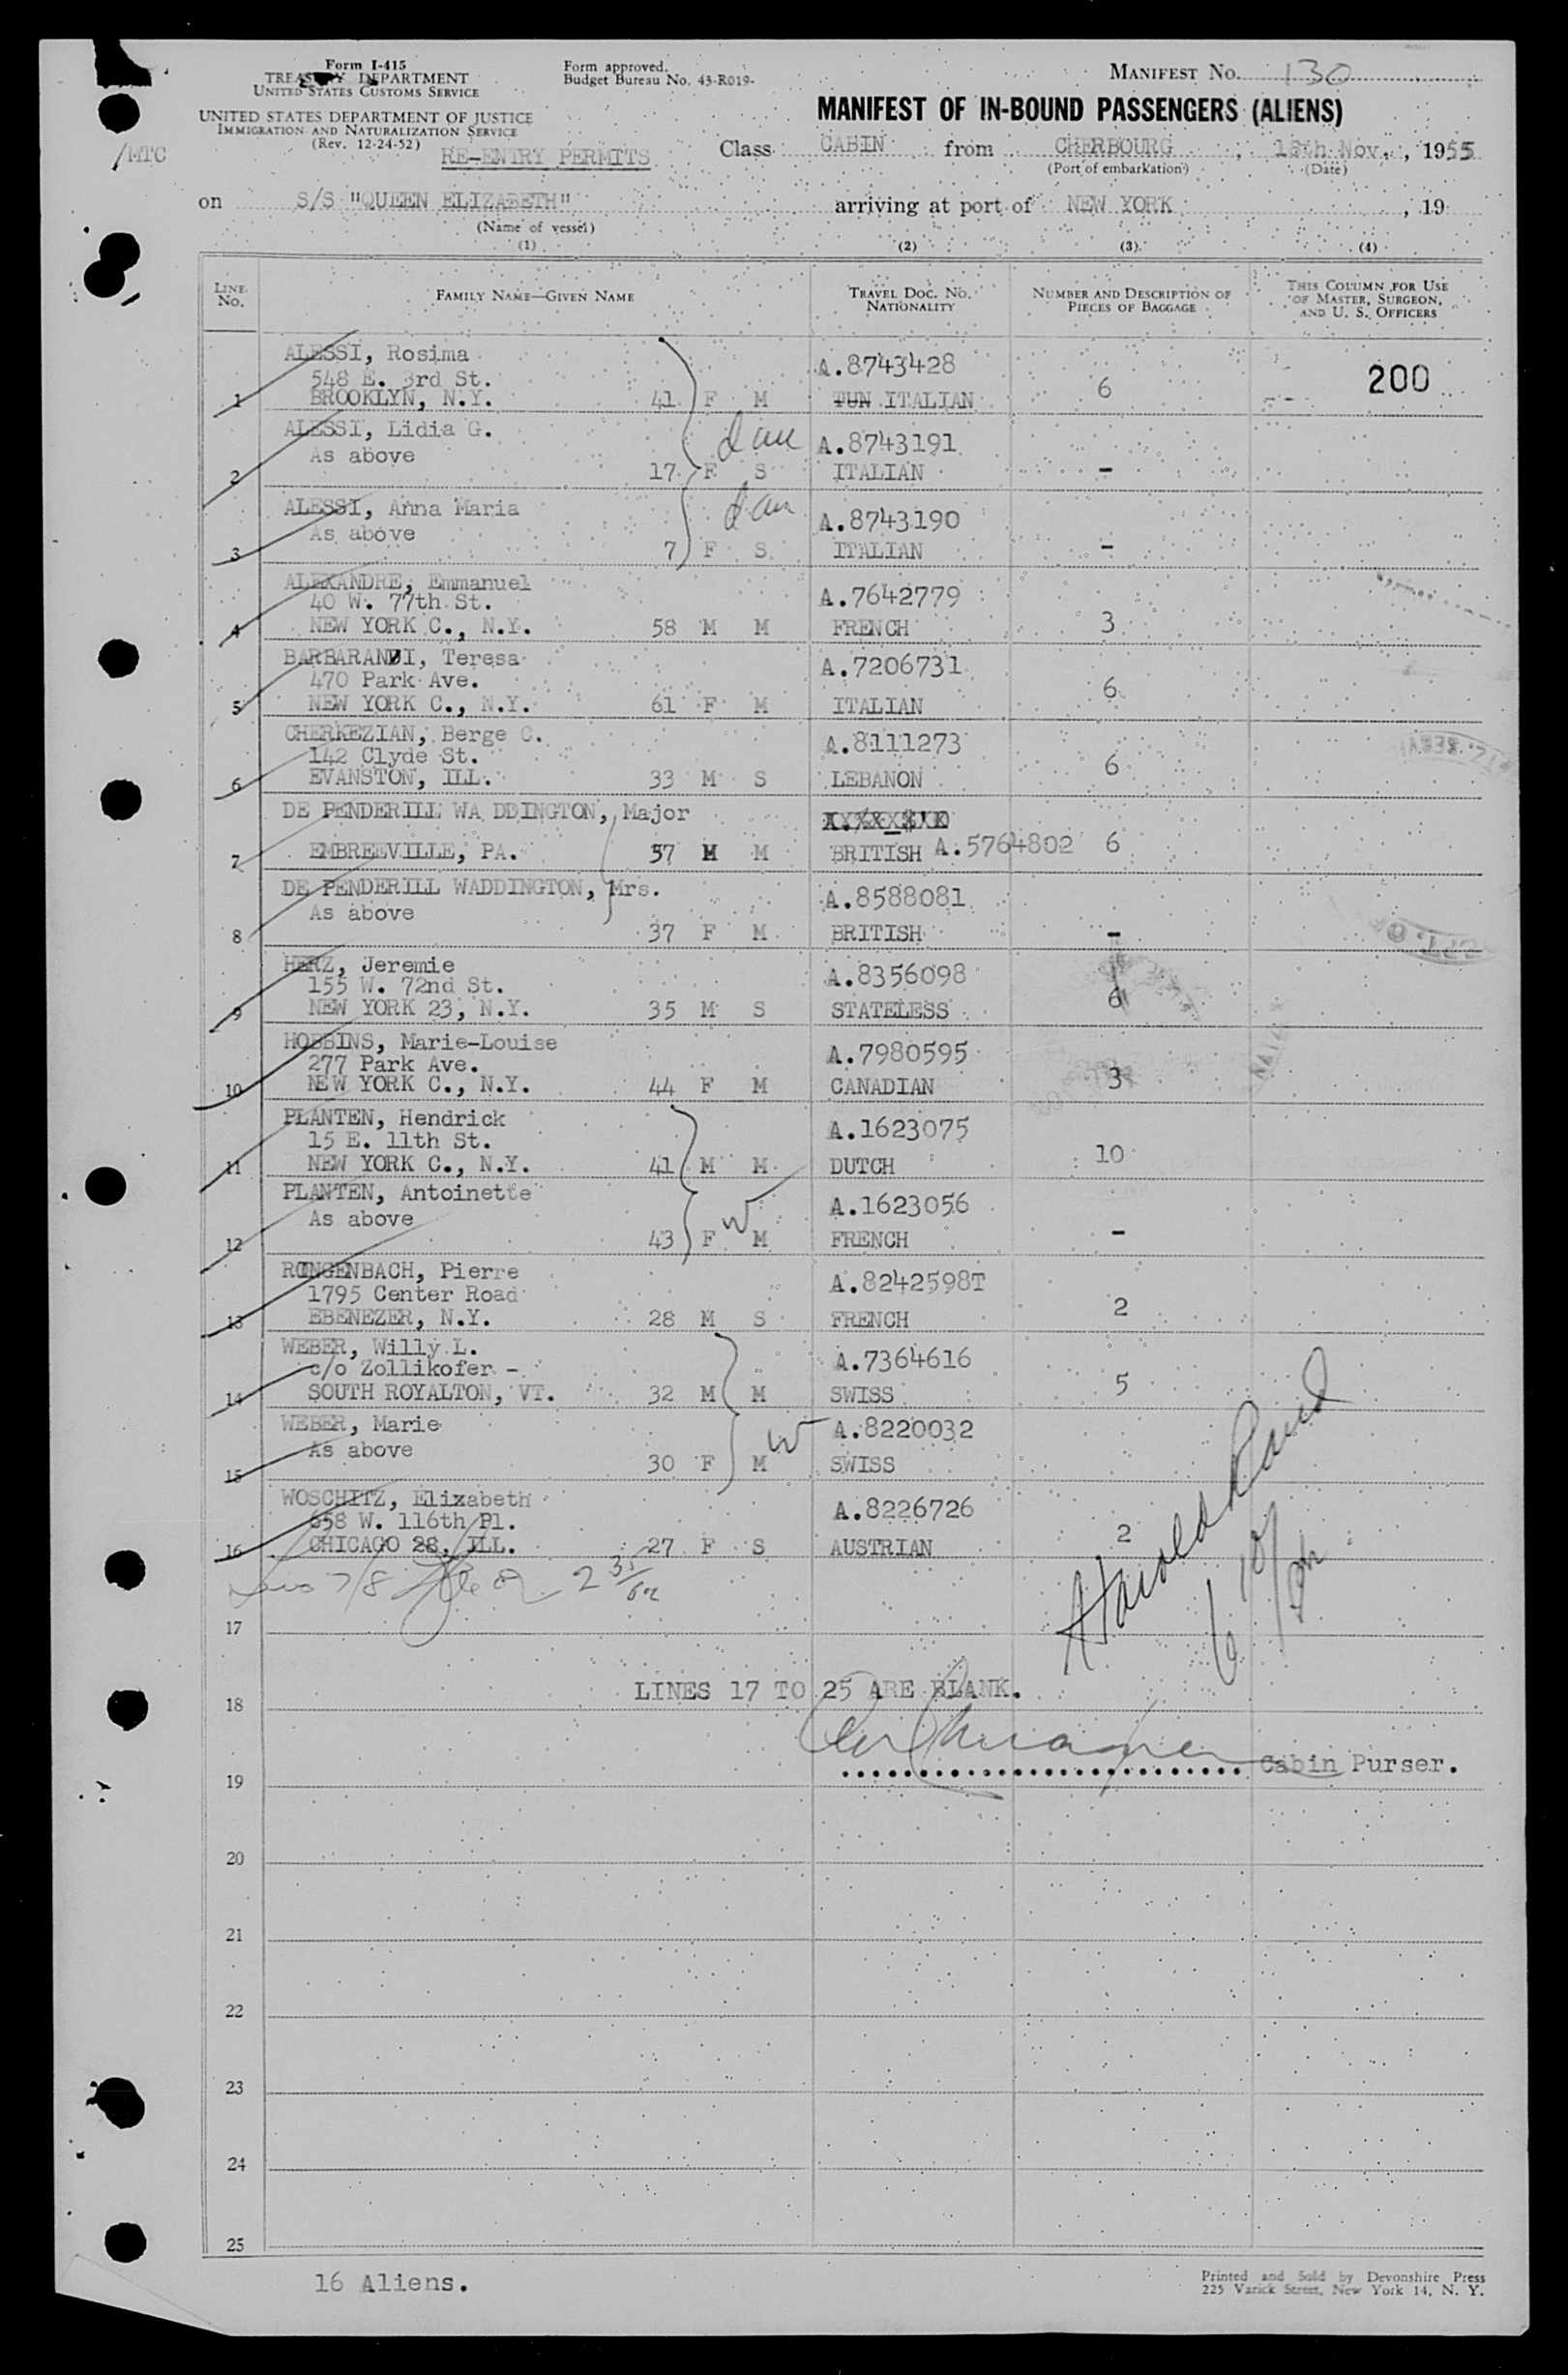 Form I-415
TREASURY DEPARTMENT
UNITED STATES CUSTOMS SERVICE
UNITED STATES DEPARTMENT OF JUSTICE
IMMIGRATION AND NATURALIZATION SERVICE
(Rev. 12-24-52)
/MTC
RE-ENTRY PERMITS
Form approved.
Budget Bureau No. 43-R019-
MANIFEST NO. 130
MANIFEST OF IN-BOUND PASSENGERS (ALIENS)
Class CABIN from CHERBOURG, 18th Nov., 1955
(Port of embarkation) (Date)
on S/S "QUEEN ELIZABETH" arriving at port of NEW YORK, 19
(Name of vessel)
(1) (2) (3) (4)
LINE NO. FAMILY NAME—GIVEN NAME TRAVEL DOC. NO. NATIONALITY NUMBER AND DESCRIPTION OF PIECES OF BAGGAGE THIS COLUMN FOR USE OF MASTER, SURGEON, AND U. S. OFFICERS
ALESSI, Rosima A.8743428 200
548 E. 3rd St.
1 BROOKLYN, N.Y. 41 F M TUN ITALIAN 6
ALESSI, Lidia G. dau A.8743191
As above
2 17 F S ITALIAN -
ALESSI, Anna Maria dau A.8743190
As above
3 7 F S ITALIAN -
ALEXANDRE, Emmanuel A.7642779
40 W. 77th St.
4 NEW YORK C., N.Y. 58 M M FRENCH 3
BARBARANDI, Teresa A.7206731
470 Park Ave.
5 NEW YORK C., N.Y. 61 F M ITALIAN 6
CHERKEZIAN, Berge C. A.8111273
142 Clyde St.
6 EVANSTON, ILL. 33 M S LEBANON 6
DE PENDERILL WA DDINGTON, Major
7 EMBREEVILLE, PA. 57 M M BRITISH A.5764802 6
DE PENDERILL WADDINGTON, Mrs. A.8588081
As above
8 37 F M BRITISH -
HERZ, Jeremie A.8356098
155 W. 72nd St.
9 NEW YORK 23, N.Y. 35 M S STATELESS 6
HOBBINS, Marie-Louise A.7980595
277 Park Ave.
10 NEW YORK C., N.Y. 44 F M CANADIAN 3
PLANTEN, Hendrick A.1623075
15 E. 11th St.
11 NEW YORK C., N.Y. 41 M M DUTCH 10
PLANTEN, Antoinette A.1623056
As above
12 43 F W M FRENCH -
RONGENBACH, Pierre A.8242598T
1795 Center Road
13 EBENEZER, N.Y. 28 M S FRENCH 2
WEBER, Willy L. A.7364616
c/o Zollikofer -
14 SOUTH ROYALTON, VT. 32 M M SWISS 5
WEBER, Marie W A.8220032
As above
15 30 F M SWISS
WOSCHITZ, Elixabeth A.8226726
658 W. 116th Pl.
16 CHICAGO 28, ILL. 27 F S AUSTRIAN 2
Harold Rand
17
LINES 17 TO 25 ARE BLANK.
18
Cabin Purser.
19
20
21
22
23
24
25
16 Aliens.
Printed and Sold by Devonshire Press
225 Varick Street, New York 14, N. Y.